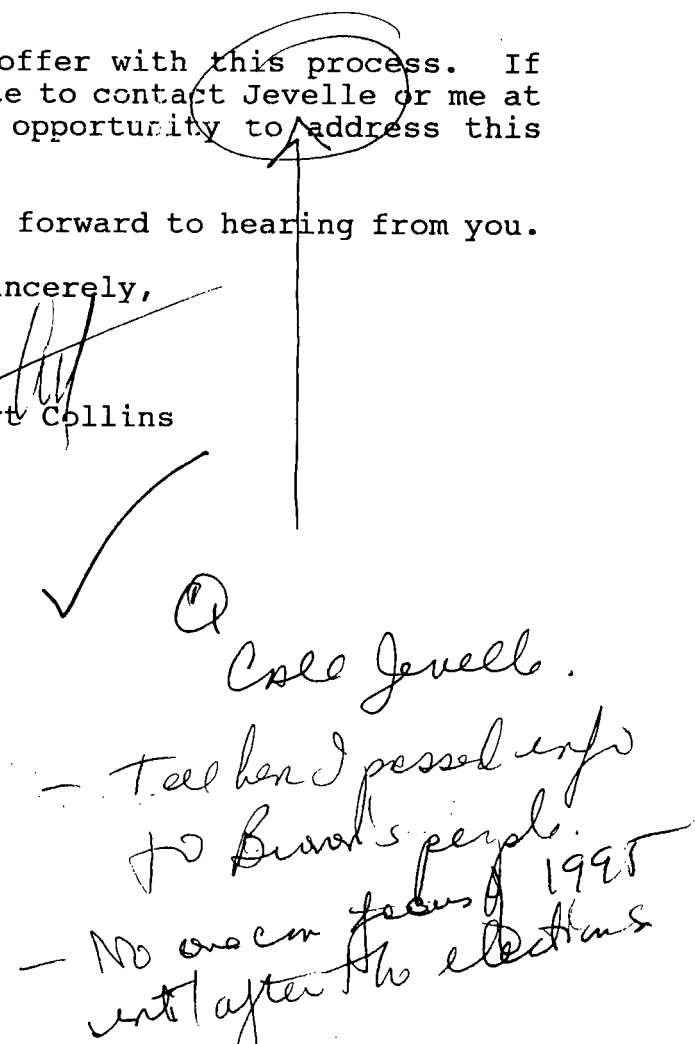 offer with this process. If
e to contact Jevelle or me at
opportunity to address this
forward to hearing from you.
ncerely,
t Collins
Q
Call Jevelle.
- Tell her I passed info
to people.
- No one can focus 1995
until after the elections